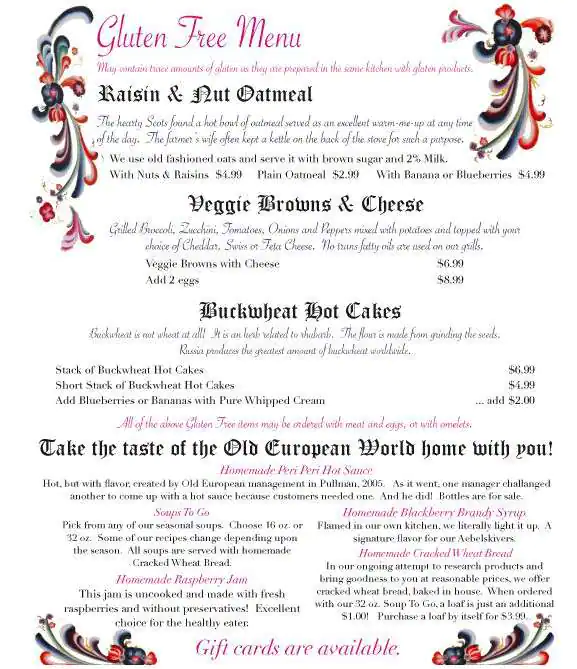 Gluten Free Menu
May contain trace amounts of gluten as they are prepared in the same kitchen with gluten products.
Raisin & Nut Oatmeal
The hearty Scots found a hot bowl of oatmeal served as an excellent warm-me-up at any time
of the day. The farmer's wife often kept a kettle on the back of the stove for such a purpose.
We use old fashioned oats and serve it with brown sugar and 2% Milk.
With Nuts & Raisins $4.99 Plain Oatmeal $2.99 With Banana or Blueberries $4.99
Veggie Browns & Cheese
Grilled Broccoli, Zucchini, Tomatoes, Onions and Peppers mixed with potatoes and topped with your
choice of Cheddar, Swiss or Feta Cheese. No trans fatty oils are used on our grills.
Veggie Browns with Cheese $6.99
Add 2 eggs $8.99
Buckwheat Hot Cakes
Buckwheat is not wheat at all! It is an herb related to rhubarb. The flour is made from grinding the seeds.
Russia produces the greatest amount of buckwheat worldwide.
Stack of Buckwheat Hot Cakes $6.99
Short Stack of Buckwheat Hot Cakes $4.99
Add Blueberries or Bananas with Pure Whipped Cream ... add $2.00
All of the above Gluten Free items may be ordered with meat and eggs, or with omelets.
Take the taste of the Old European World home with you!
Homemade Peri Peri Hot Sauce
Hot, but with flavor, created by Old European management in Pullman, 2005. As it went, one manager challanged
another to come up with a hot sauce because customers needed one. And he did! Bottles are for sale.
Soups To Go
Pick from any of our seasonal soups. Choose 16 oz. or
32 oz. Some of our recipes change depending upon
the season. All soups are served with homemade
Cracked Wheat Bread.
Homemade Raspberry Jam
This jam is uncooked and made with fresh
raspberries and without preservatives! Excellent
choice for the healthy eater.
Homemade Blackberry Brandy Syrup
Flamed in our own kitchen, we literally light it up. A
signature flavor for our Aebelskivers.
Homemade Cracked Wheat Bread
In our ongoing attempt to research products and
bring goodness to you at reasonable prices, we offer
cracked wheat bread, baked in house. When ordered
with our 32 oz. Soup To Go, a loaf is just an additional
$1.00! Purchase a loaf by itself for $3.99.
Gift cards are available.